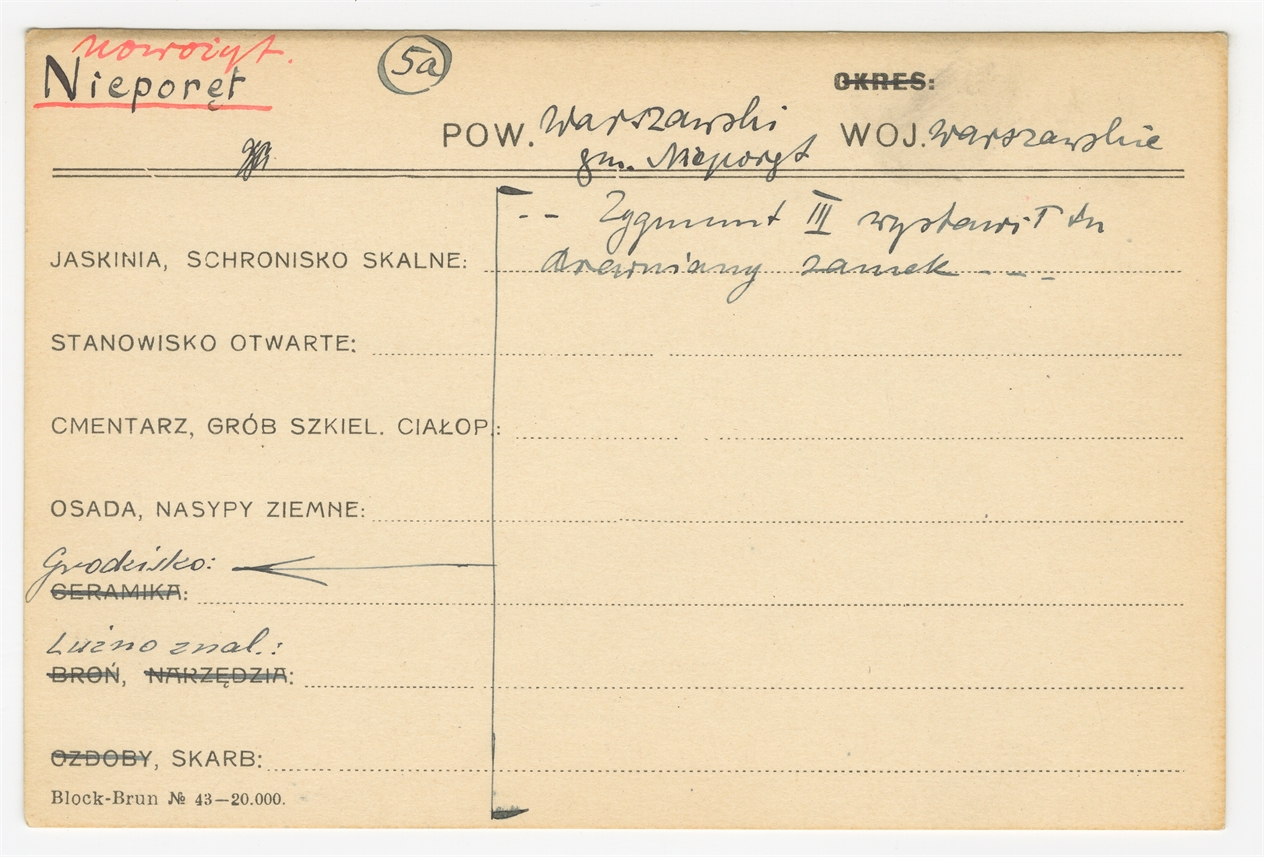 nowożyt.
Nieporęt
5a
OKRES:
POW. Warszawski WOJ. Warszawskie
gm. Nieporęt
-- Zygmunt III wystawił tu
JASKINIA, SCHRONISKO SKALNE: drewniany zamek - - -
STANOWISKO OTWARTE:
CMENTARZ, GRÓB SZKIEL. CIAŁOP.:
OSADA, NASYPY ZIEMNE:
Grodzisko:
CERAMIKA:
Luźno znal.:
BROŃ, NARZĘDZIA:
OZDOBY, SKARB:
Block-Brun № 43—20.000.